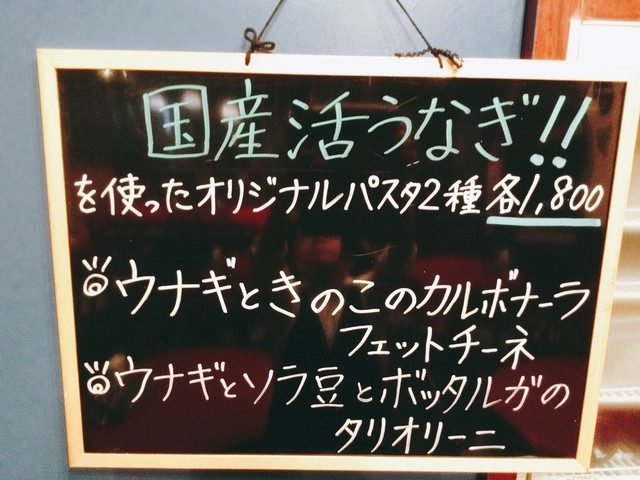 国産活うなぎ!!
を使ったオリジナルパスタ2種 各1,800
ウナギときのこのカルボナーラ
フェットチーネ
ウナギとソラ豆とボッタルガの
タリオリーニ